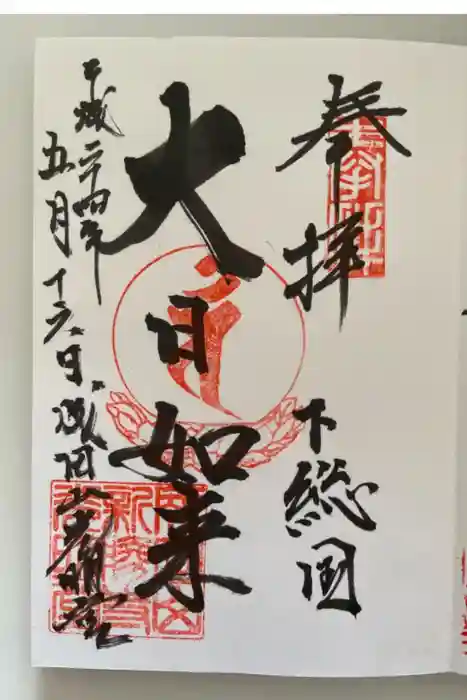 奉拝
下総国
大日如来
平成二十四年
五月十六日 成田山光明堂